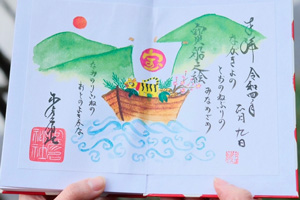 奉拝
令和四年
正月九日
なかきよの
とおのねふりの
みなめさめ
寶船之絵
宝
なみのりふねの
おとのよきかな